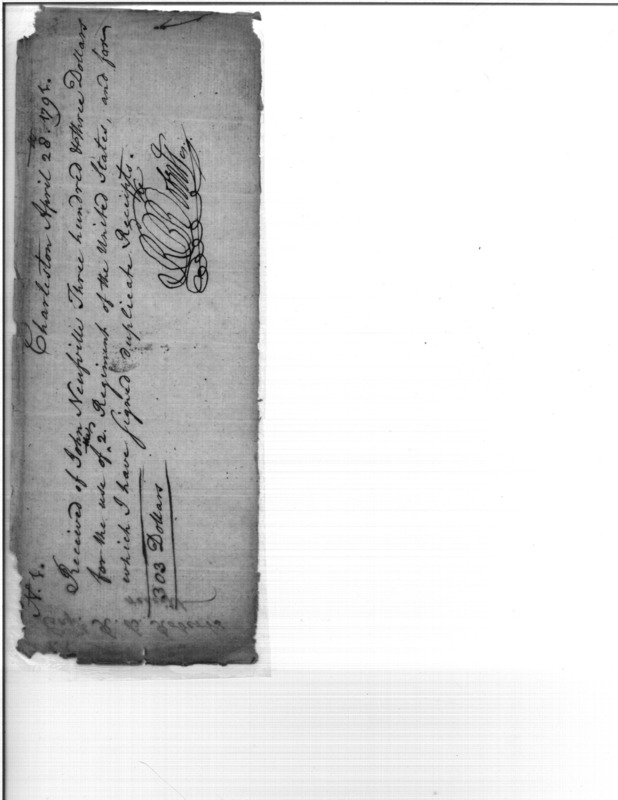 Nº 1.
Charleston April 28th 1792.
Received of John Neufville Three hundred & three Dollars
for the use of the 2. Regiment of the United States, and for
which I have signed duplicate Receipts.
303 Dollars